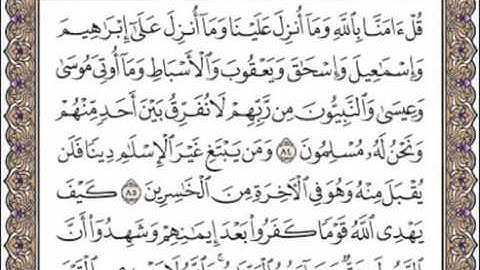 قُلْ ءَامَنَّا بِٱللَّهِ وَمَآ أُنزِلَ عَلَيْنَا وَمَآ أُنزِلَ عَلَىٰٓ إِبْرَٰهِيمَ
وَإِسْمَٰعِيلَ وَإِسْحَٰقَ وَيَعْقُوبَ وَٱلْأَسْبَاطِ وَمَآ أُوتِىَ مُوسَىٰ
وَعِيسَىٰ وَٱلنَّبِيُّونَ مِن رَّبِّهِمْ لَا نُفَرِّقُ بَيْنَ أَحَدٍ مِّنْهُمْ
وَنَحْنُ لَهُۥ مُسْلِمُونَ ٨٤ وَمَن يَبْتَغِ غَيْرَ ٱلْإِسْلَٰمِ دِينًا فَلَن
يُقْبَلَ مِنْهُ وَهُوَ فِى ٱلْءَاخِرَةِ مِنَ ٱلْخَٰسِرِينَ ٨٥ كَيْفَ
يَهْدِى ٱللَّهُ قَوْمًا كَفَرُوا۟ بَعْدَ إِيمَٰنِهِمْ وَشَهِدُوٓا۟ أَنَّ